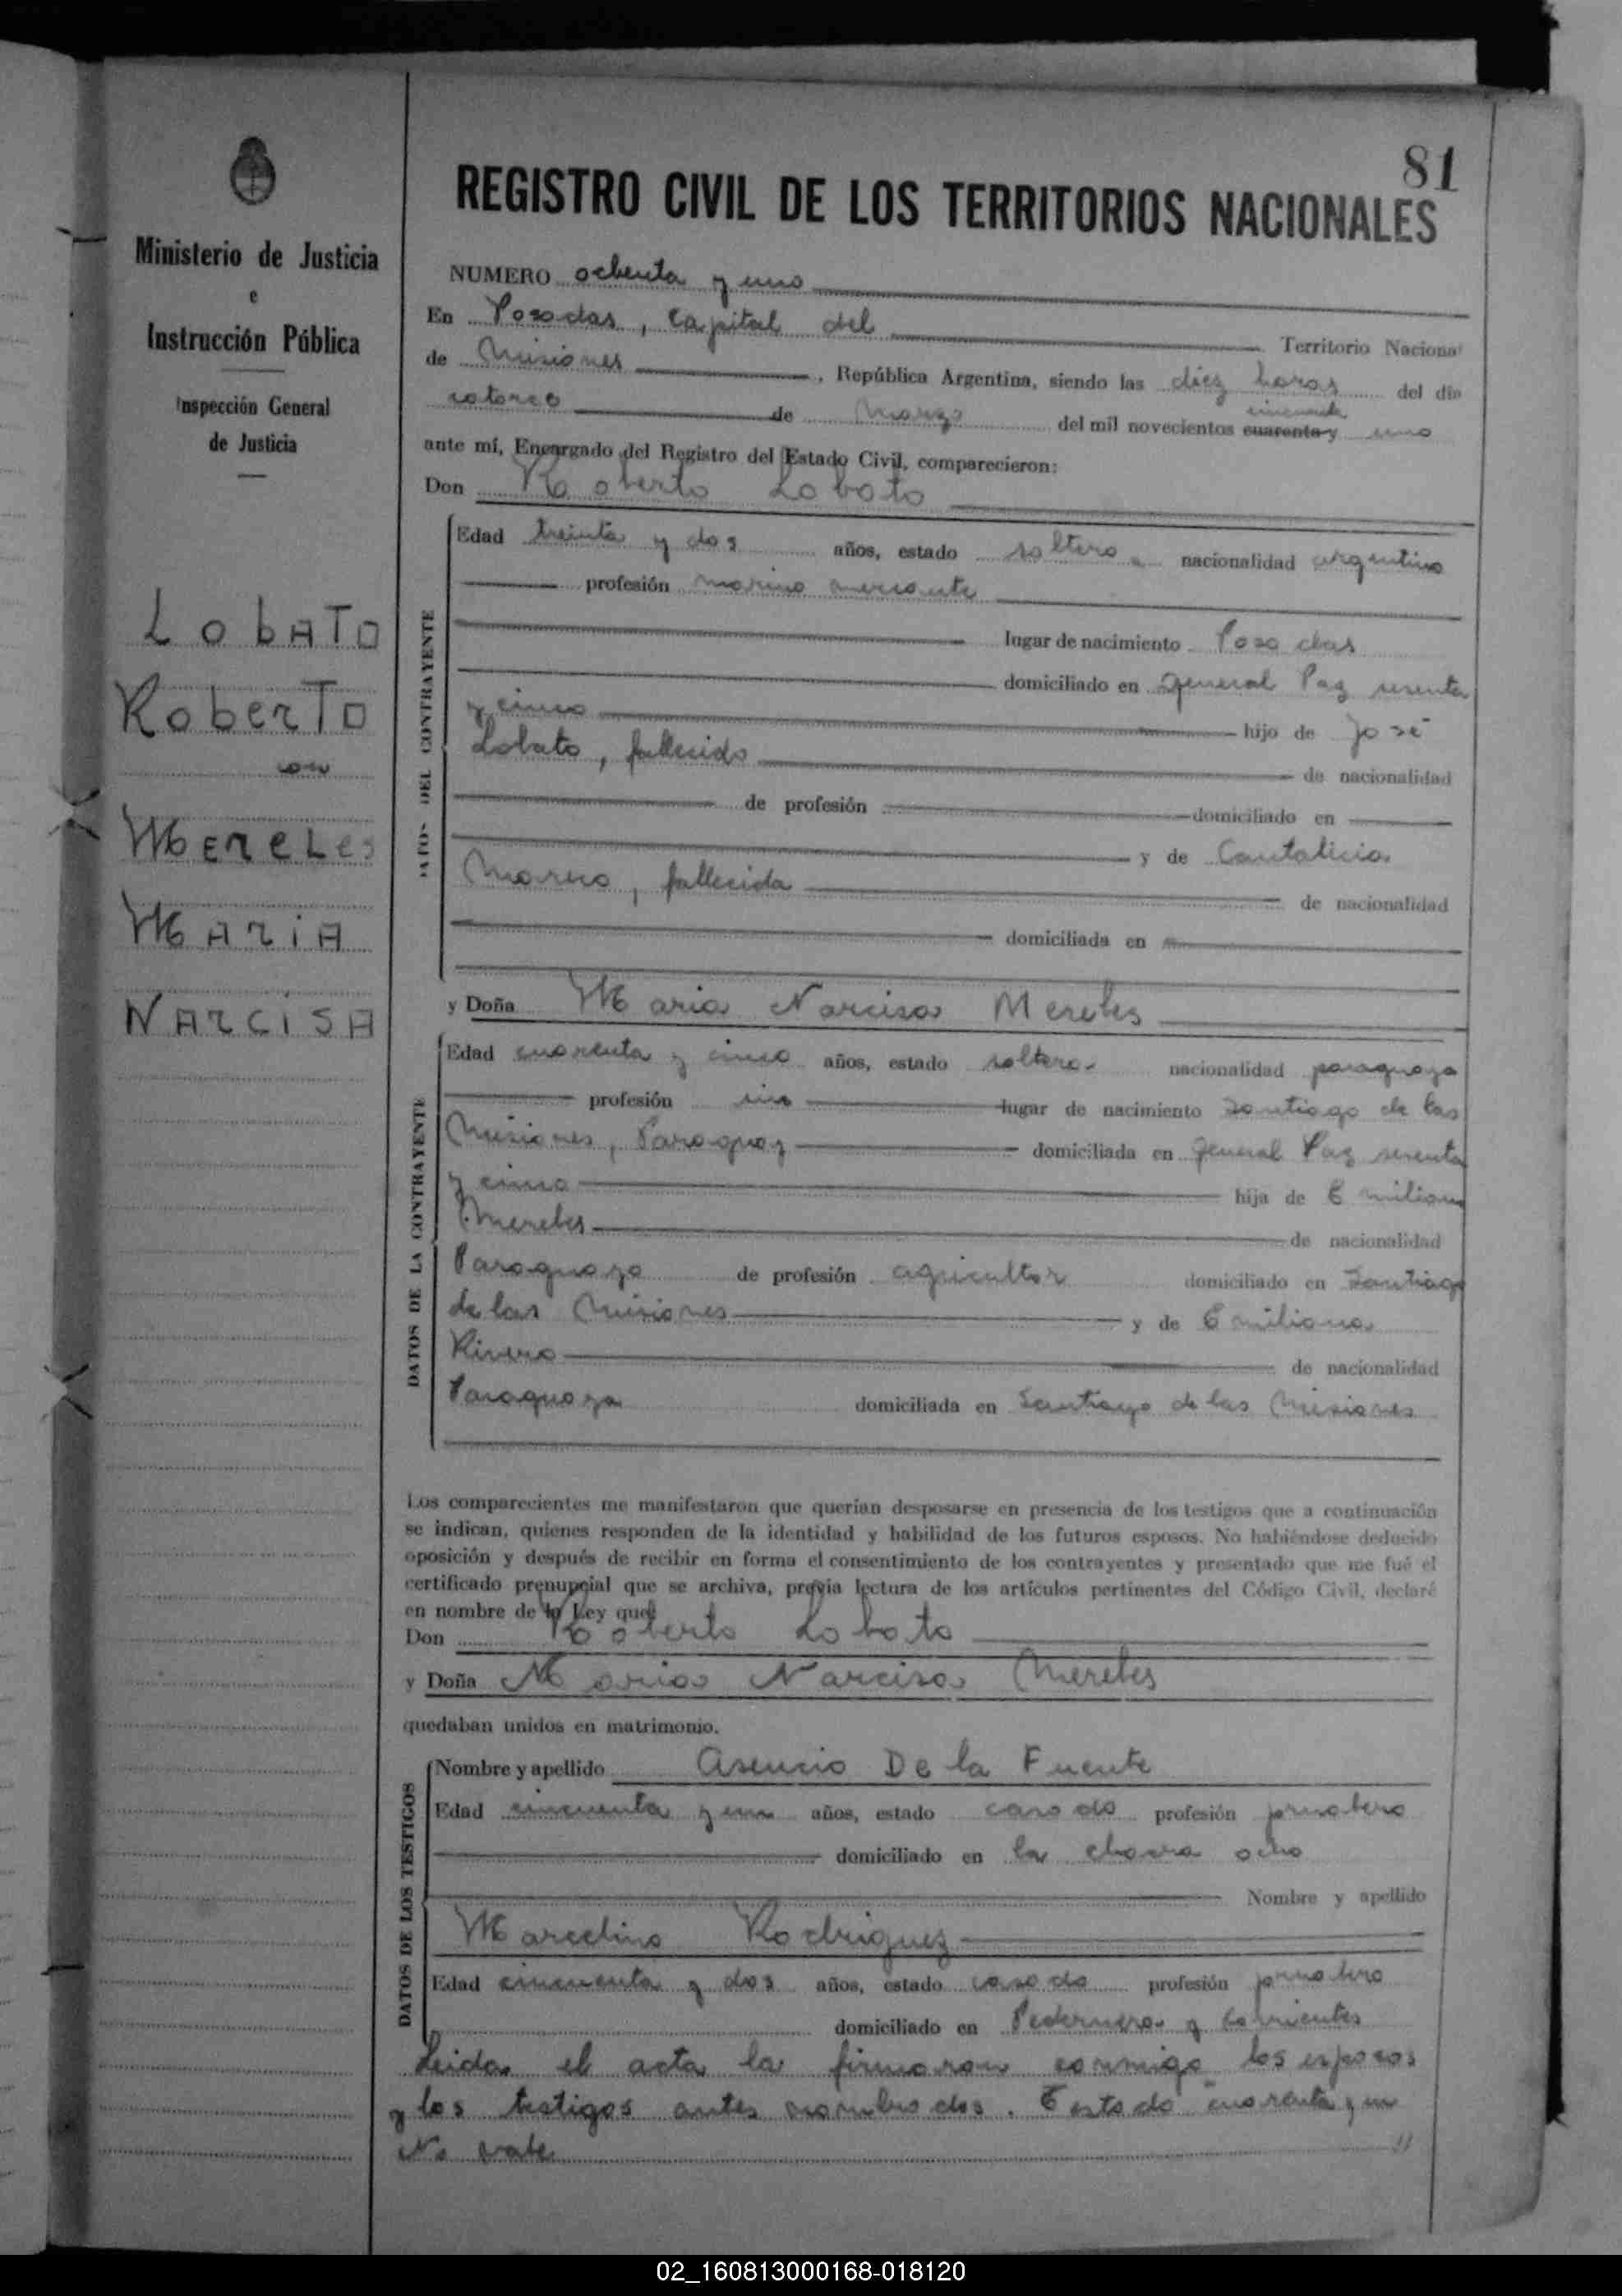 81
REGISTRO CIVIL DE LOS TERRITORIOS NACIONALES
Ministerio de Justicia
e
Instrucción Pública
Inspección General
de Justicia
LobATO
RoberTO
con
MEReLes
MARIA
NARCISA
NUMERO ochenta y uno
En Posadas, Capital del Territorio Nacional
de Misiones, República Argentina, siendo las diez horas del día
cincuenta
catorce de Marzo del mil novecientos cuarenta y uno
ante mí, Encargado del Registro del Estado Civil, comparecieron:
Don Roberto Lobato
DATOS DEL CONTRAYENTE
Edad treinta y dos años, estado soltero nacionalidad argentino
profesión marino mercante
lugar de nacimiento Posadas
domiciliado en General Paz sesenta
y cinco hijo de José
Lobato, fallecido de nacionalidad
de profesión domiciliado en
y de Cantalicia
fallecida de nacionalidad
domiciliada en
y Doña Maria Narcisa Mereles
DATOS DE LA CONTRAYENTE
Edad cuarenta y cinco años, estado soltera nacionalidad paraguaya
profesión sin lugar de nacimiento Santiago de las
Misiones, Paraguay domiciliada en General Paz sesenta
y cinco hija de Emiliano
Mereles de nacionalidad
Paraguaya de profesión agricultor domiciliado en Santiago
de las Misiones y de Emiliana
Rivero de nacionalidad
Paraguaya domiciliada en Santiago de las Misiones
Los comparecientes me manifestaron que querían desposarse en presencia de los testigos que a continuación
se indican, quienes responden de la identidad y habilidad de los futuros esposos. No habiéndose deducido
oposición y después de recibir en forma el consentimiento de los contrayentes y presentado que me fué el
certificado prenupcial que se archiva, previa lectura de los artículos pertinentes del Código Civil, declaré
en nombre de la Ley que
Don Roberto Lobato
y Doña Maria Narcisa Mereles
quedaban unidos en matrimonio.
DATOS DE LOS TESTIGOS
Nombre y apellido Asencio De la Fuente
Edad cincuenta y un años, estado casado profesión jornalero
domiciliado en la chacra ocho
Nombre y apellido
Marcelino Rodriguez
Edad cincuenta y dos años, estado casado profesión jornalero
domiciliado en Pedernera y Corrientes
Leida el acta la firmaron conmigo los esposos
y los testigos antes nombrados. Testado cuarenta y un
No vale
02_160813000168-018120